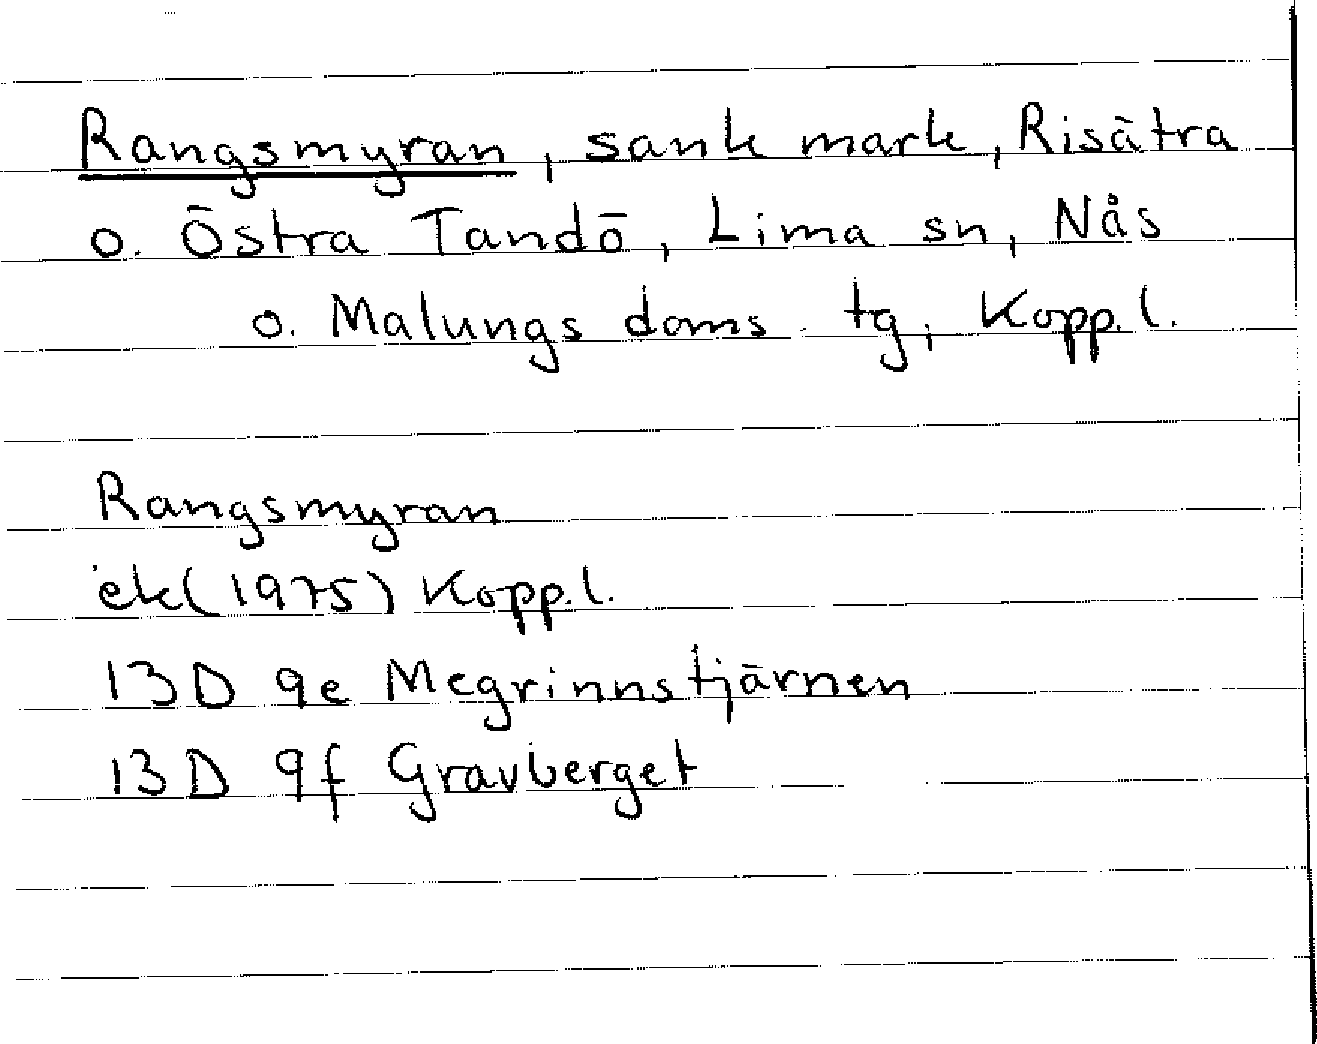 Rangsmyran, sank mark, Risätra
o. Östra Tandö, Lima sn, Nås
o. Malungs doms. tg, Kopp.l.
Rangsmyran
ek(1975) Kopp.l.
13D 9e Megrinnstjärnen
13D 9f Gravberget